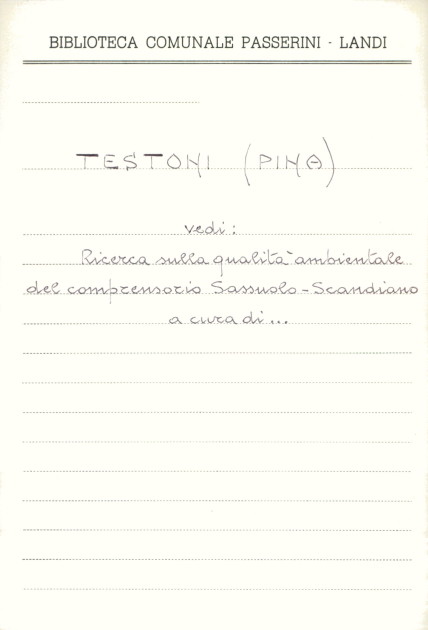 BIBLIOTECA COMUNALE PASSERINI - LANDI
TESTONI (PINA)
vedi:
Ricerca sulla qualità ambientale
del comprensorio Sassuolo - Scandiano
a cura di...